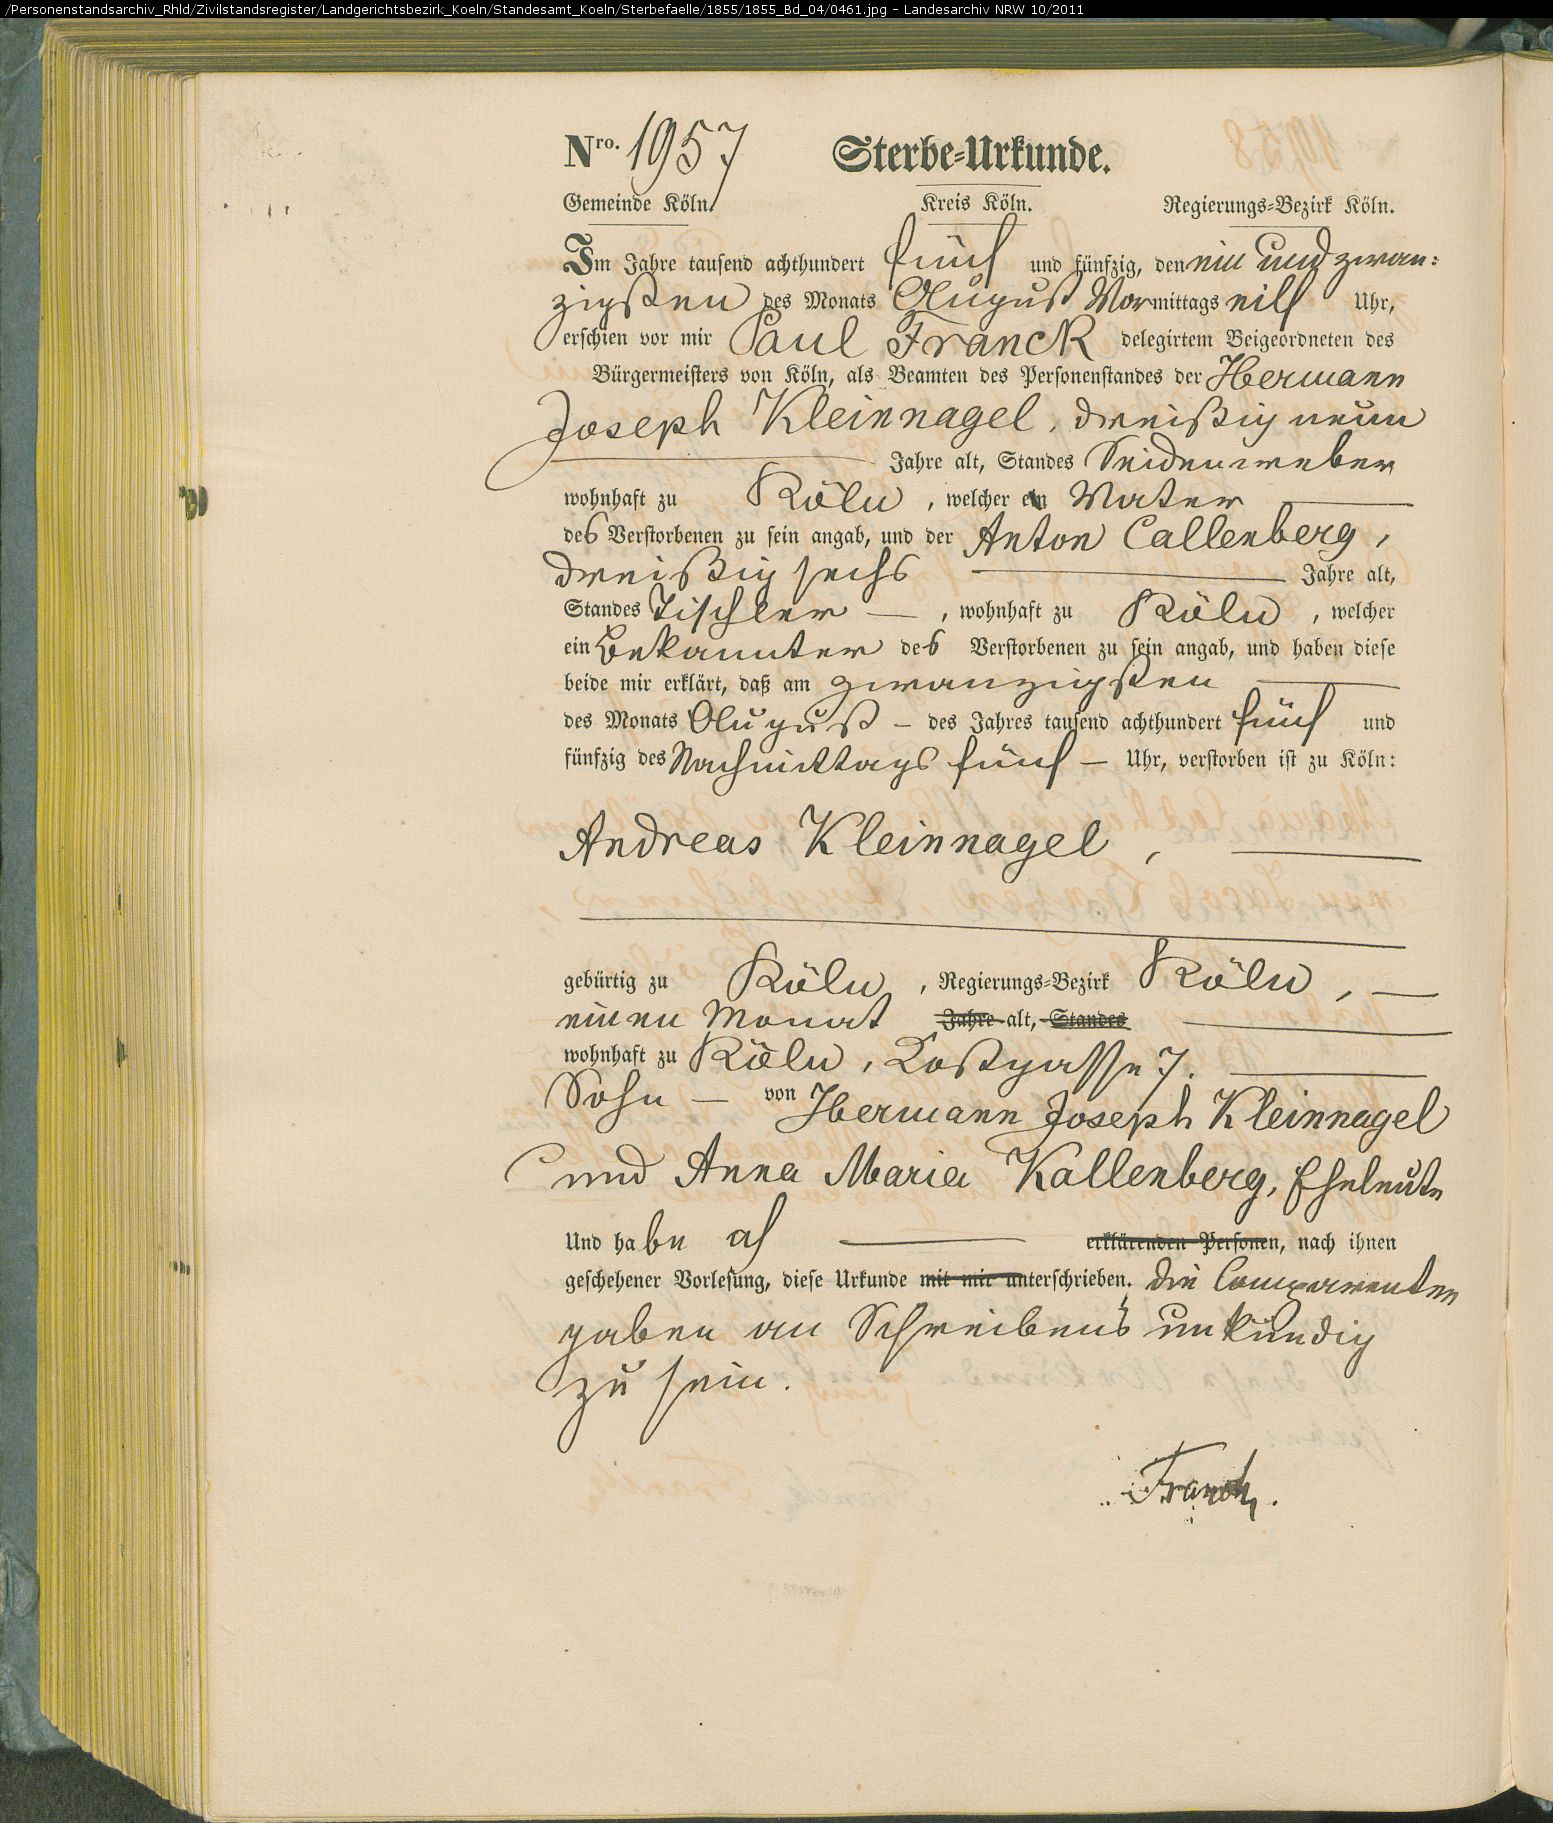 /Personenstandsarchiv_Rhld/Zivilstandsregister/Landgerichtsbezirk_Koeln/Standesamt_Koeln/Sterbefaelle/1855/1855_Bd_04/0461.jpg – Landesarchiv NRW 10/2011
Nro. 1957 Sterbe=Urkunde.
Gemeinde Köln. Kreis Köln. Regierungs=Bezirk Köln.
Im Jahre tausend achthundert fünf und fünfzig, den ein und zwan:
zigsten des Monats August Vormittags eilf Uhr,
erschien vor mir Paul Franck delegirtem Beigeordneten des
Bürgermeisters von Köln, als Beamten des Personenstandes der Hermann
Joseph Kleinnagel, dreißig neun
Jahre alt, Standes Seidenweber
wohnhaft zu Köln, welcher ein Vater
des Verstorbenen zu sein angab, und der Anton Callenberg,
dreißig sechs Jahre alt,
Standes Tischler —, wohnhaft zu Köln, welcher
ein Bekannter des Verstorbenen zu sein angab, und haben diese
beide mir erklärt, daß am zwanzigsten
des Monats August – des Jahres tausend achthundert fünf und
fünfzig des Nachmittags fünf – Uhr, verstorben ist zu Köln:
Andreas Kleinnagel,
gebürtig zu Köln, Regierungs=Bezirk Köln, —
einen Monat Jahre alt, Standes
wohnhaft zu Köln, Loßgasse 7.
Sohn — von Hermann Joseph Kleinnagel
und Anna Maria Kallenberg, Eheleute
Und habe ich erklärenden Personen, nach ihnen
geschehener Vorlesung, diese Urkunde mit mir unterschrieben. Die Comparenten
gaben an Schreibens unkundig
zu sein.
Franck.